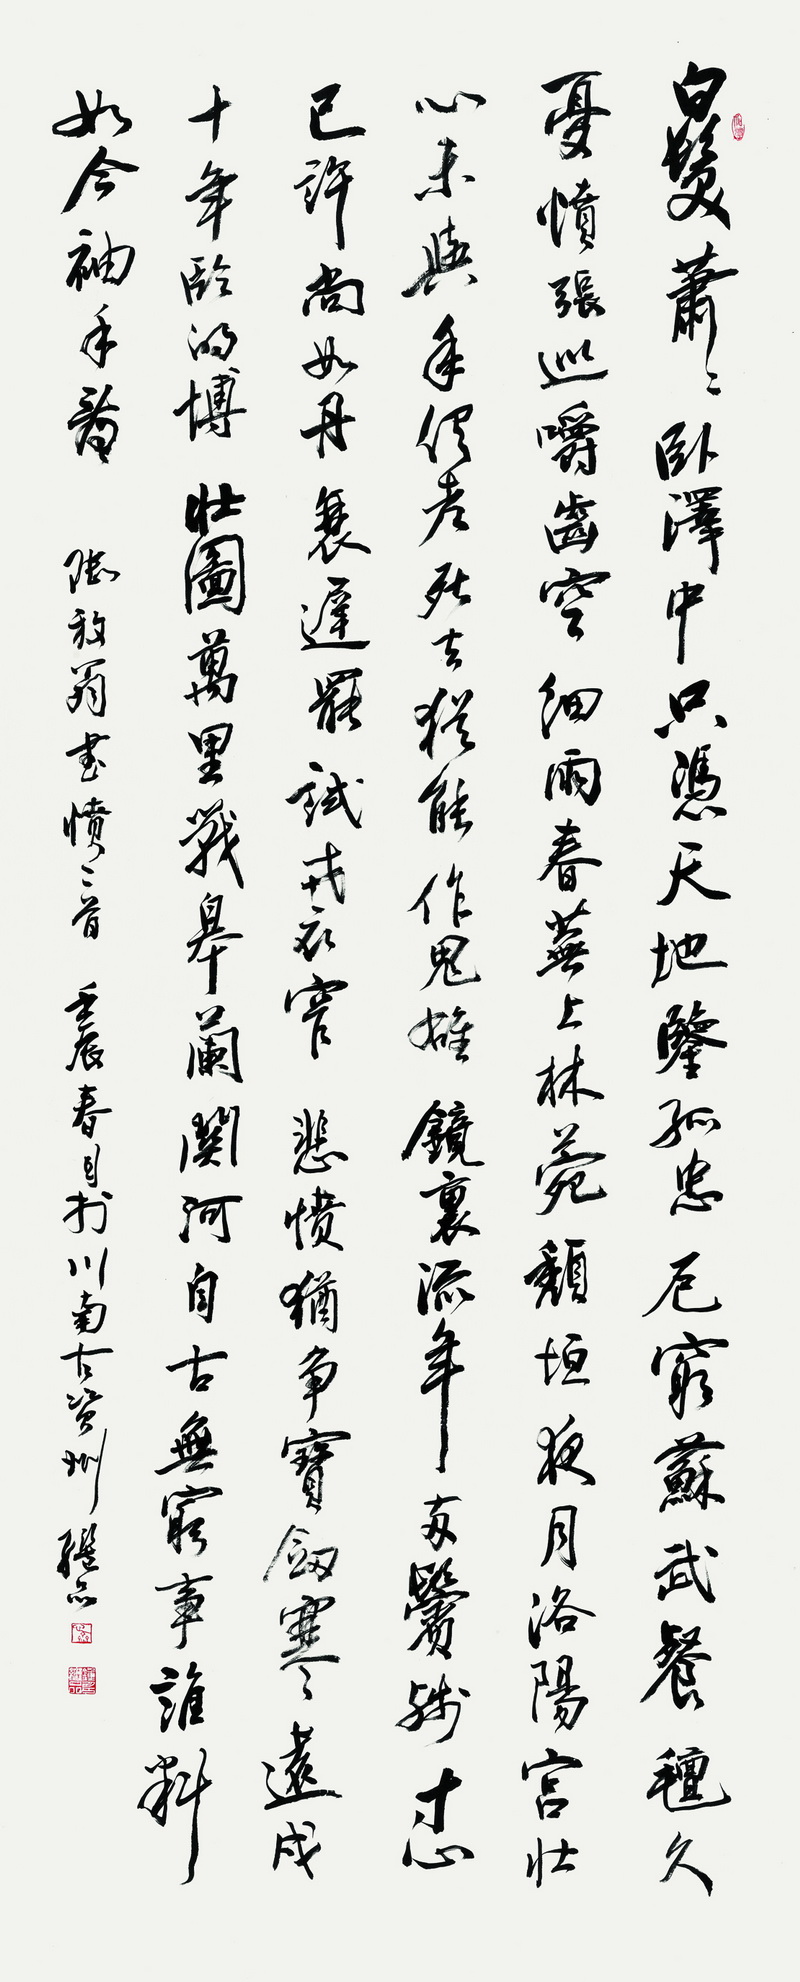 白髮蕭〻卧澤中只憑天地鑒孤忠厄窮蘇武餐氊久
憂憤張巡嚼齒空細雨春蕪上林苑頹垣夜月洛陽宮壯
心未與年俱老死去猶能作鬼雄鏡裏流年兩鬢殘寸心
已許尚如丹衰遲罷試戎衣窄悲憤猶爭寶劍寒遠戍
十年臨的博壯圖萬里戰皋蘭關河自古無窮事誰料
如今袖手看 陸放翁書憤二首 壬辰春月於川南古資州